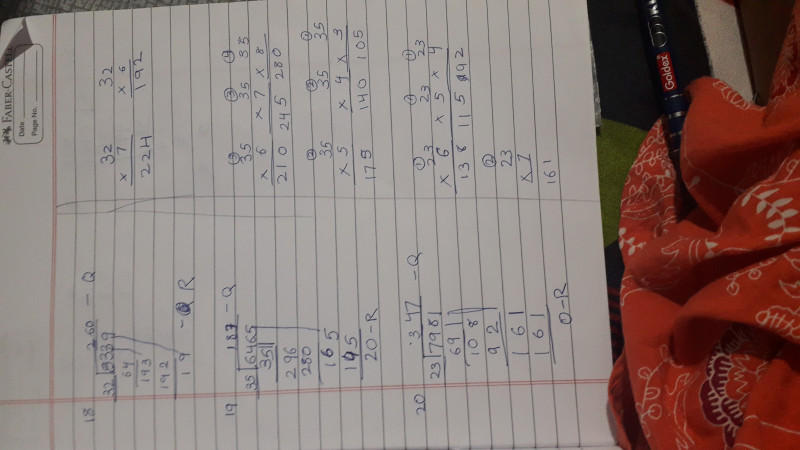 FABER-CASTELL
Date
Page No.
18 260 - Q
32 8339
64
193
192
19 - R
32 32
× 7 × 6
224 192
19 187 - Q
35 6465
35
296
280
165
145
20 - R
③ ③ ④
35 35 35
× 6 × 7 × 8
210 245 280
② ② ①
35 35 35
× 5 × 4 × 3
175 140 105
20 347 - Q
23 7981
69
108
92
161
161
0 - R
① ① ①
23 23 23
× 6 × 5 × 4
138 115 92
②
23
× 7
161
Goldex